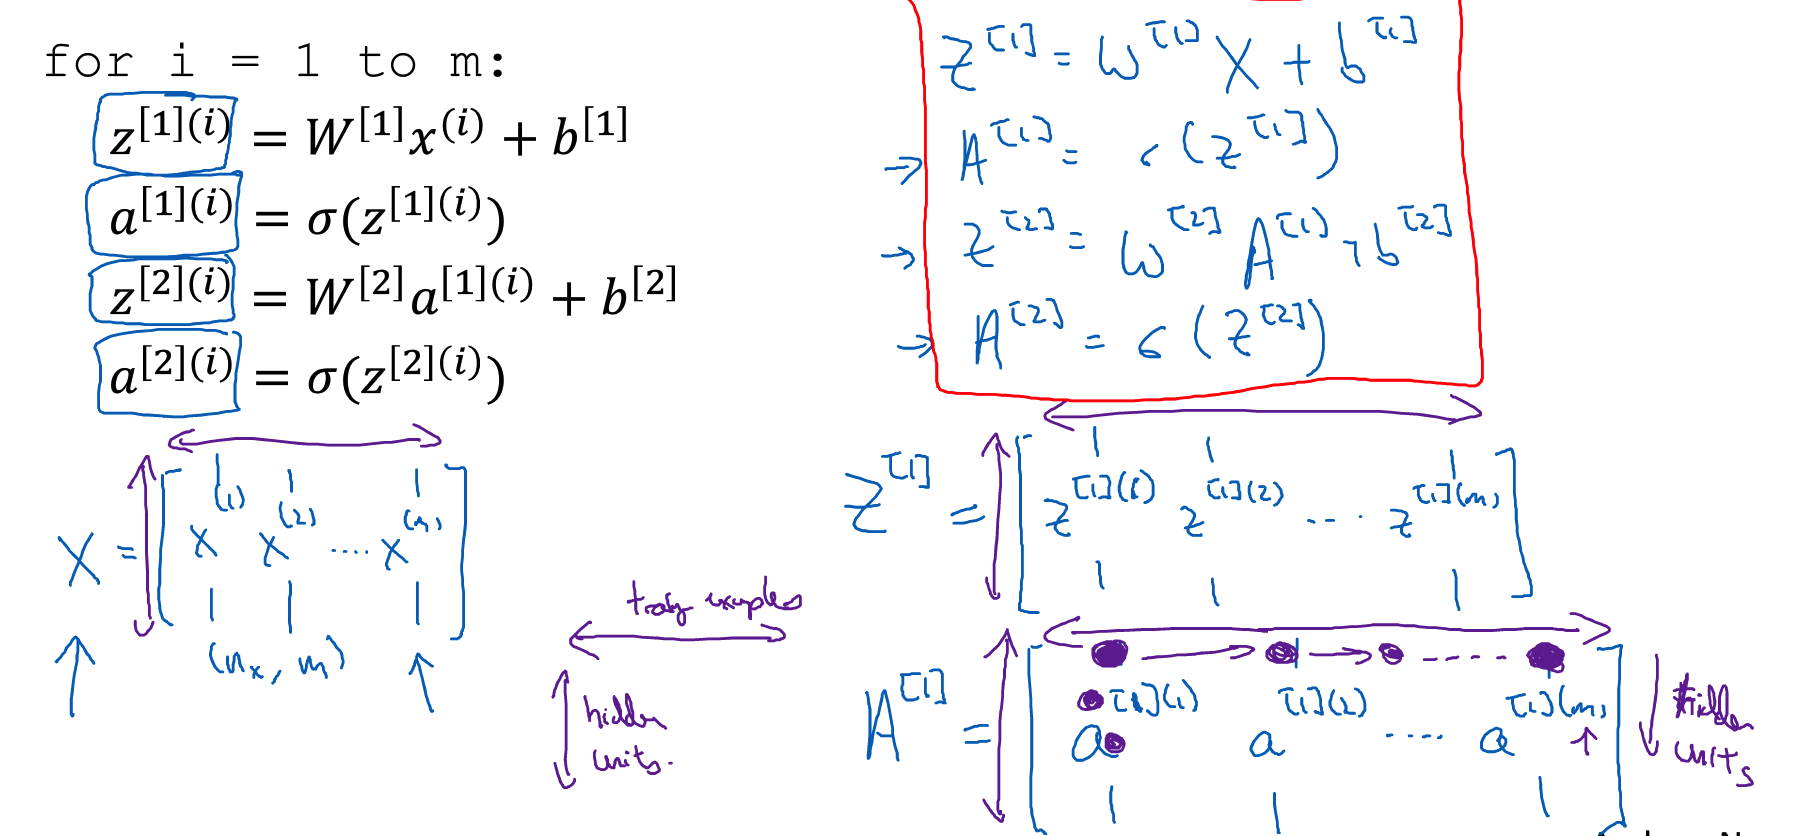 for i = 1 to m:
z^[1](i) = W^[1]x^(i) + b^[1]
a^[1](i) = σ(z^[1](i))
z^[2](i) = W^[2]a^[1](i) + b^[2]
a^[2](i) = σ(z^[2](i))
X = [ x^(1) x^(2) .... x^(m) ]
(n_x, m)
hidden
units.
Z^[1] = W^[1] X + b^[1]
→ A^[1] = σ(Z^[1])
→ Z^[2] = W^[2] A^[1] + b^[2]
→ A^[2] = σ(Z^[2])
Z^[1] = [ z^[1](1) z^[1](2) .... z^[1](m) ]
A^[1] = [ a^[1](1) a^[1](2) .... a^[1](m) ]
hidden
units